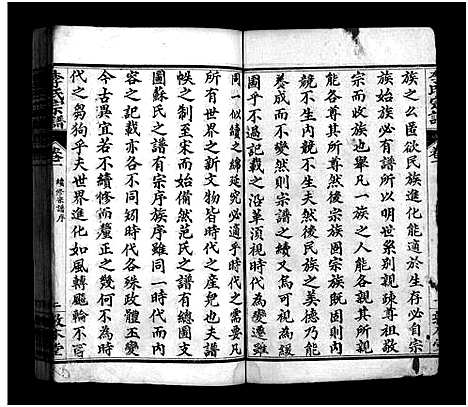 族之幺匿欲民族進化能適於生存也必自宗
族始族必有譜所以明世系别親疎尊祖敬
宗而收族也舉凡一族之人能各親其所親
能各尊其所尊然後宗族固宗族既固則內
競不生內競不生夫然後民族之美德乃能
養成而不變然則宗譜之續又烏可視為緩
圖乎不過記載之沿革須視時代為變遷雖
同一似續之綿延究必適乎時代之需要凡
所有世界之新文物皆時代之產兒也夫譜
帙之制至宋而始備然范氏之譜有總圖支
圖蘇氏之譜有宗序族序雖同一時代而支
容之記載亦各不同矧時代各殊政體互變
今古異宜若不續修而釐正之幾何不為時
代之芻狗乎夫世界進化如風轉飈輪不可
李氏宗譜
卷一
續修宗譜序
李氏宗譜
卷一